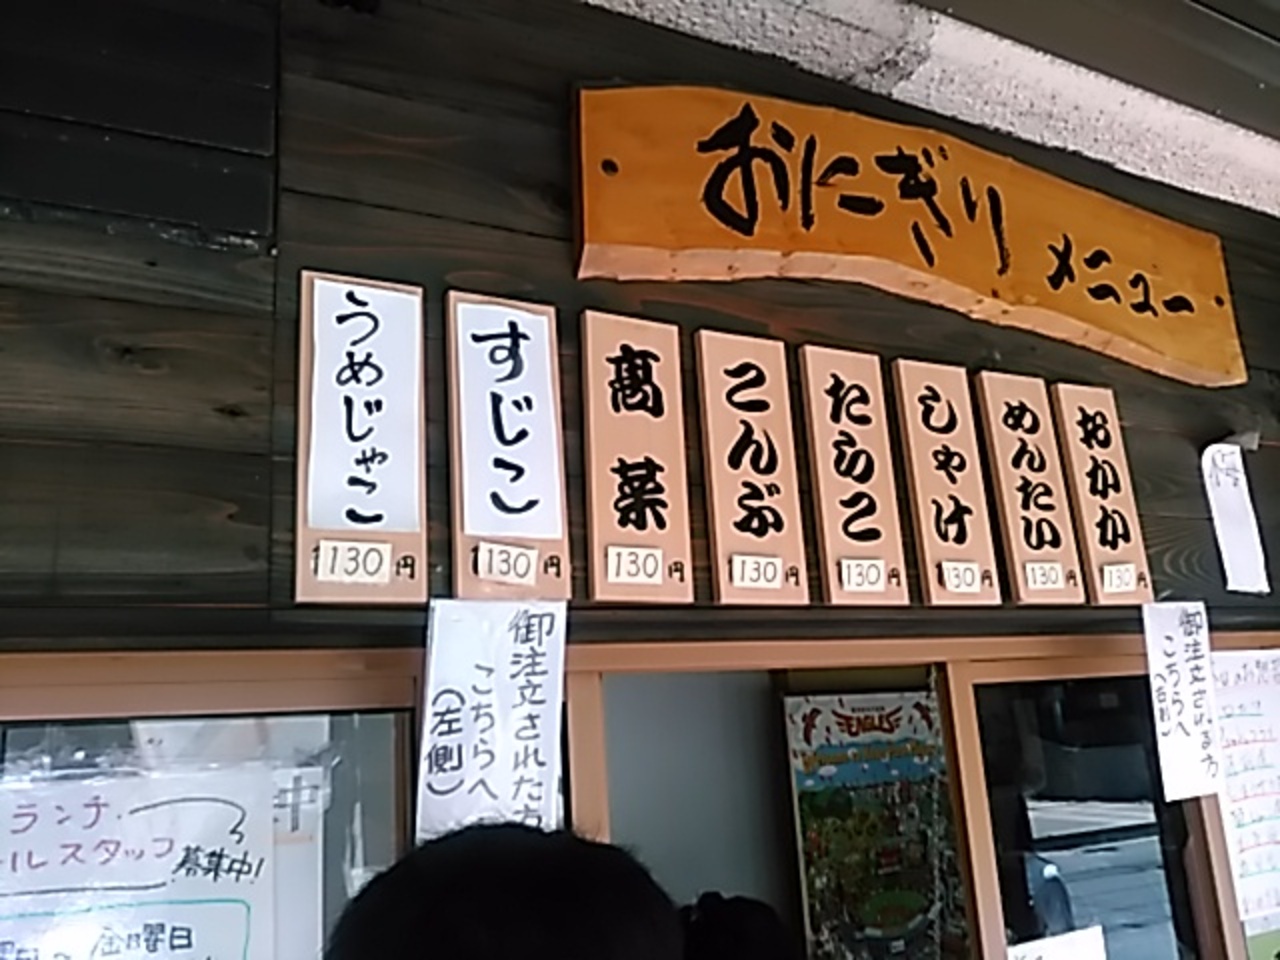 おにぎり
メニュー
おかか
130円
めんたい
130円
しゃけ
130円
たらこ
130円
こんぶ
130円
高菜
130円
すじこ
130円
うめじゃこ
130円
御注文された方
こちらへ
(左側)
御注文される方
こちらへ
EAGLES
中
ランチ
ールスタッフ
募集中!
金曜日